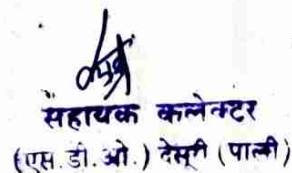 सहायक कलेक्टर
(एस. डी. ओ.) देसूरी (पाली)